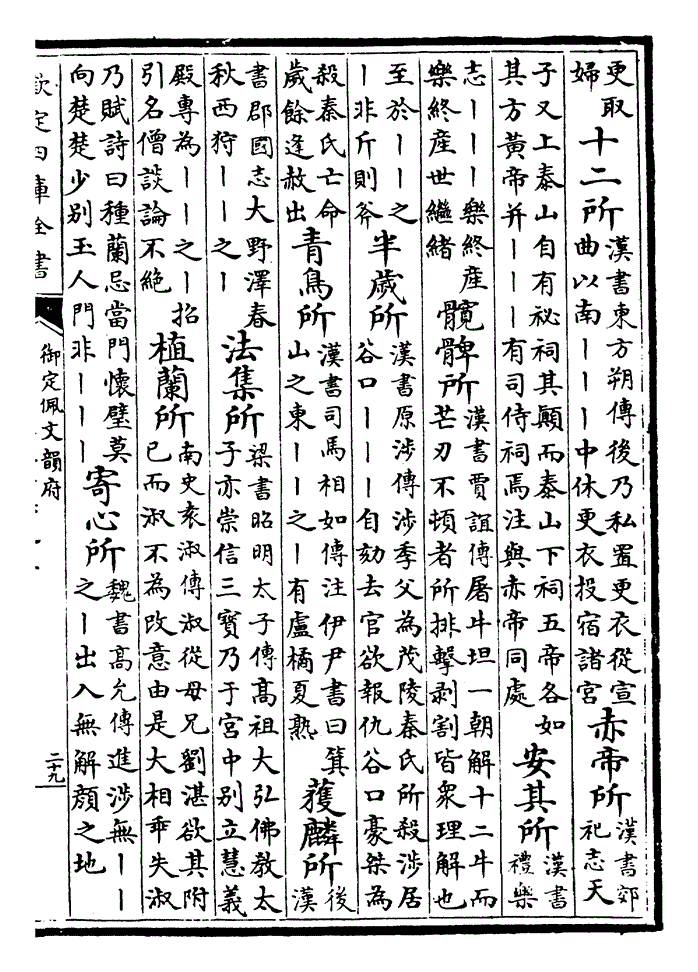 更取婦十二所漢書東方朔傳後乃私置更衣從宣曲以南｜｜｜中休更衣投宿諸宮赤帝所漢書郊祀志天
子又上泰山自有祕祠其顛而泰山下祠五帝各如其方黃帝并｜｜｜有司侍祠焉注與赤帝同處安其所漢書禮樂
志｜｜｜樂終產樂終產世繼緒髖髀所漢書賈誼傳屠牛坦一朝解十二牛而芒刃不頓者所排擊剥割皆衆理解也
至於｜｜之｜非斤則斧半歲所漢書原涉傳涉季父為茂陵秦氏所殺涉居谷口｜｜｜自劾去官欲報仇谷口豪桀為
殺秦氏亡命歲餘逢赦出青鳥所漢書司馬相如傳注伊尹書曰箕山之東｜｜之｜有盧橘夏熟獲麟所後漢
書郡國志大野澤春秋西狩｜｜之｜法集所梁書昭明太子傳高祖大弘佛教太子亦崇信三寶乃于宮中别立慧義
殿專為｜｜之｜招引名僧談論不絶植蘭所南史袁淑傳淑從母兄劉湛欲其附已而淑不為改意由是大相乖失淑
乃賦詩曰種蘭忌當門懷璧莫向楚楚少别玉人門非｜｜｜寄心所魏書高允傳進涉無｜｜之｜出入無解顏之地
欽定四庫全書
御定佩文韻府
二十九